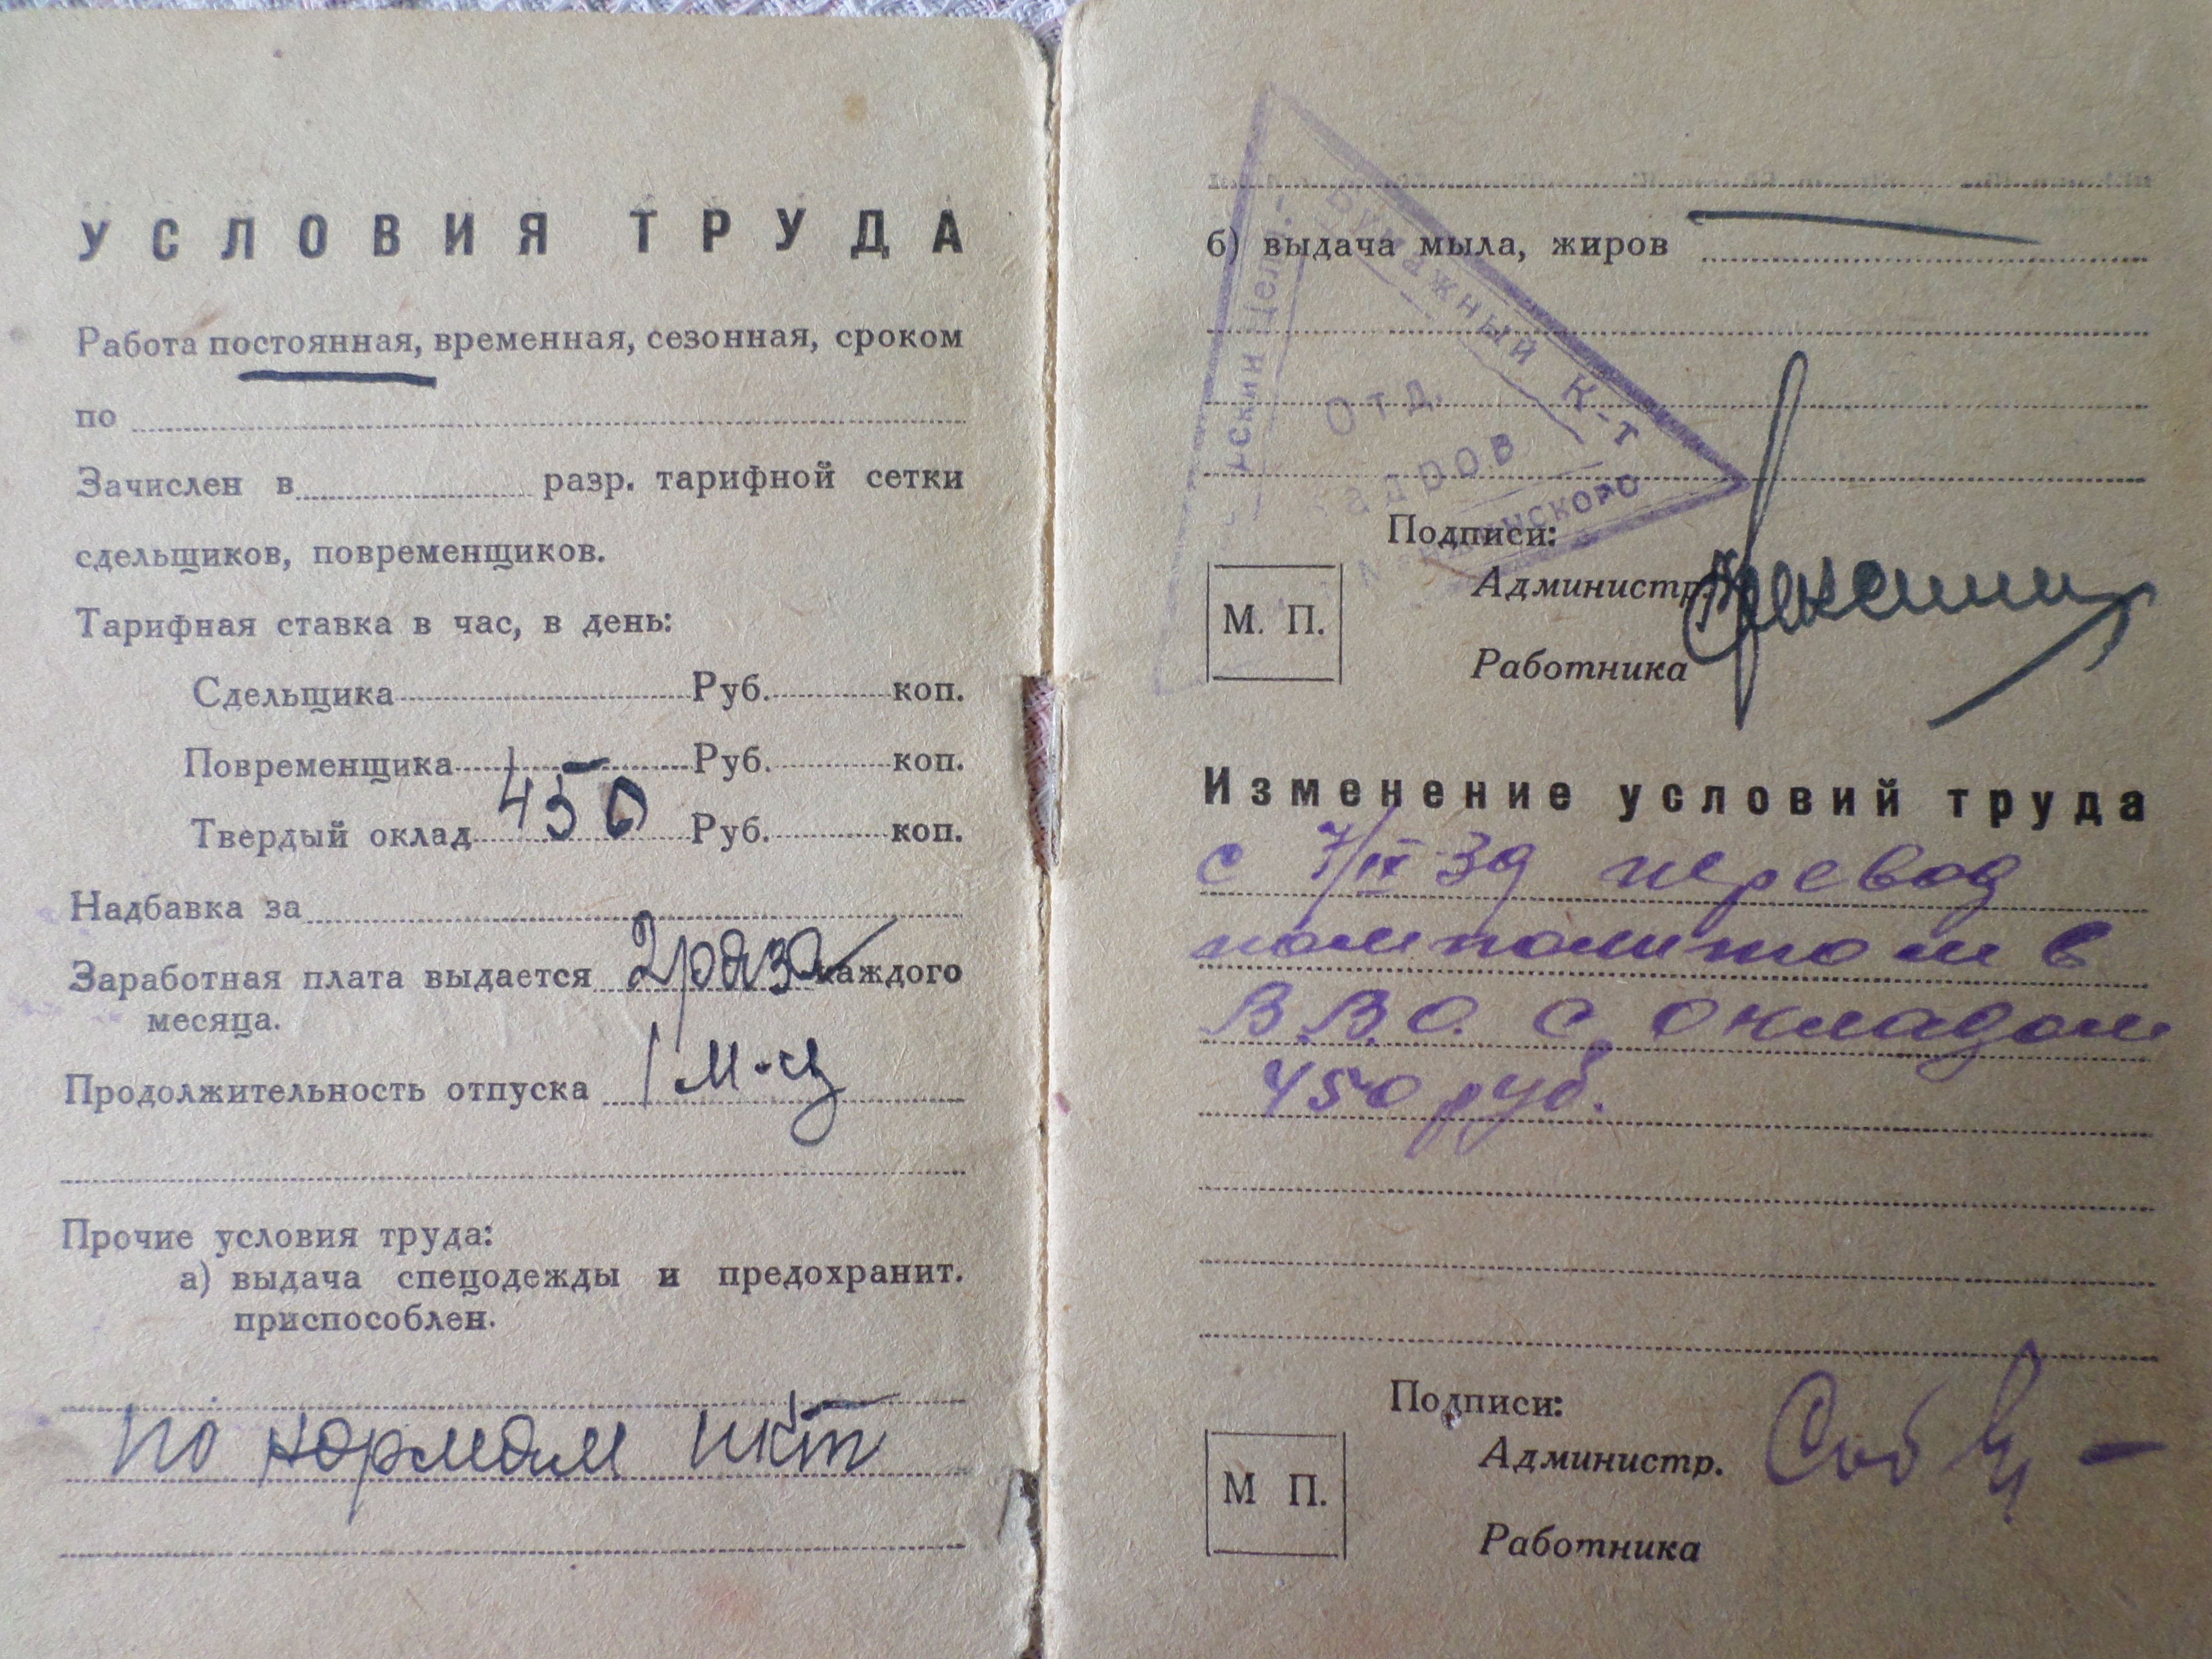 УСЛОВИЯ ТРУДА
Работа постоянная, временная, сезонная, сроком
по
Зачислен в разр. тарифной сетки
сдельщиков, повременщиков.
Тарифная ставка в час, в день:
Сдельщика Руб. коп.
Повременщика Руб. коп.
Твердый оклад 450 Руб. коп.
Надбавка за
Заработная плата выдается 2 раза каждого
месяца.
Продолжительность отпуска 1 м-ц
Прочие условия труда:
а) выдача спецодежды и предохранит.
приспособлен.
по нормам НКТ
б) выдача мыла, жиров
Бумажный К-т
Отд.
Подписи:
М. П.
Администр.
Работника
Изменение условий труда
с 7/IX 39 перевод
помполитом в
В.В.О. с окладом
450 руб.
Подписи:
М П.
Администр.
Работника